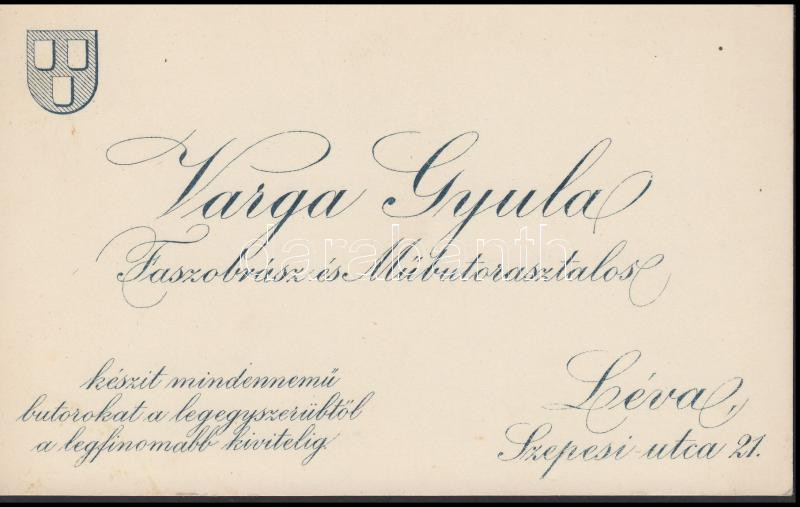 Varga Gyula
Faszobrász és Műbutorasztalos
készit mindennemű
butorokat a legegyszerübtől
a legfinomabb kivitelig.
Léva,
Szepesi-utca 21.
darabanth